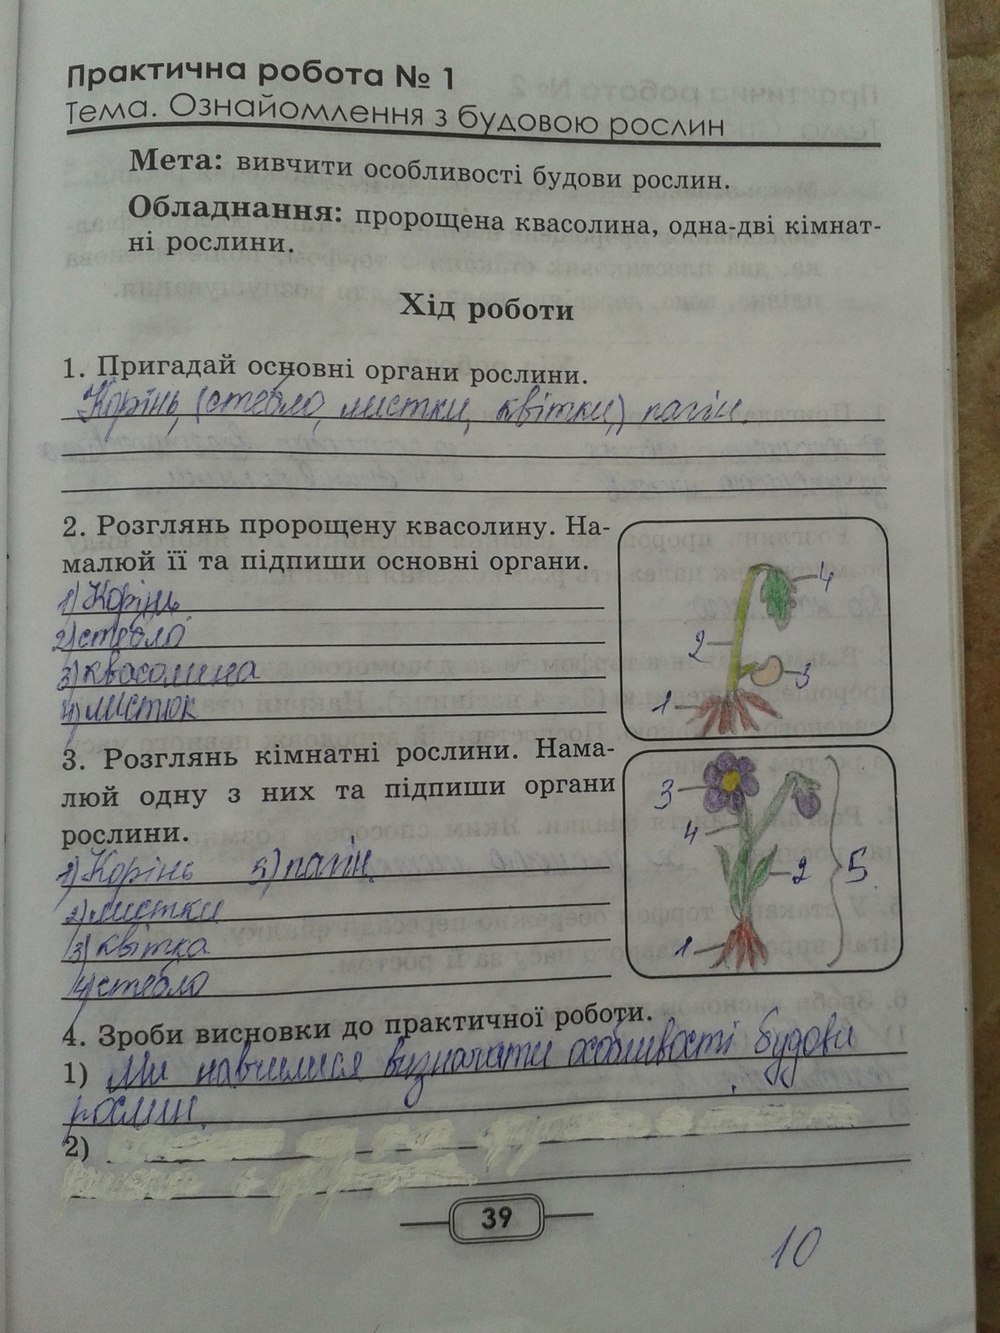 Практична робота № 1
Тема. Ознайомлення з будовою рослин
Мета: вивчити особливості будови рослин.
Обладнання: пророщена квасолина, одна-дві кімнат-
ні рослини.
Хід роботи
1. Пригадай основні органи рослини.
Корінь, (стебло, листки, квітки,) пагін.
2. Розглянь пророщену квасолину. На-
малюй її та підпиши основні органи.
1) Корінь
2) стебло
3) квасолина
4) листок
4
2
3
1
3. Розглянь кімнатні рослини. Нама-
люй одну з них та підпиши органи
рослини.
1) Корінь 5) пагін
2) листки
3) квітка
4) стебло
3
4
2
5
1
4. Зроби висновки до практичної роботи.
1) Ми навчилися визначати особливості будови
рослин.
2)
39
10